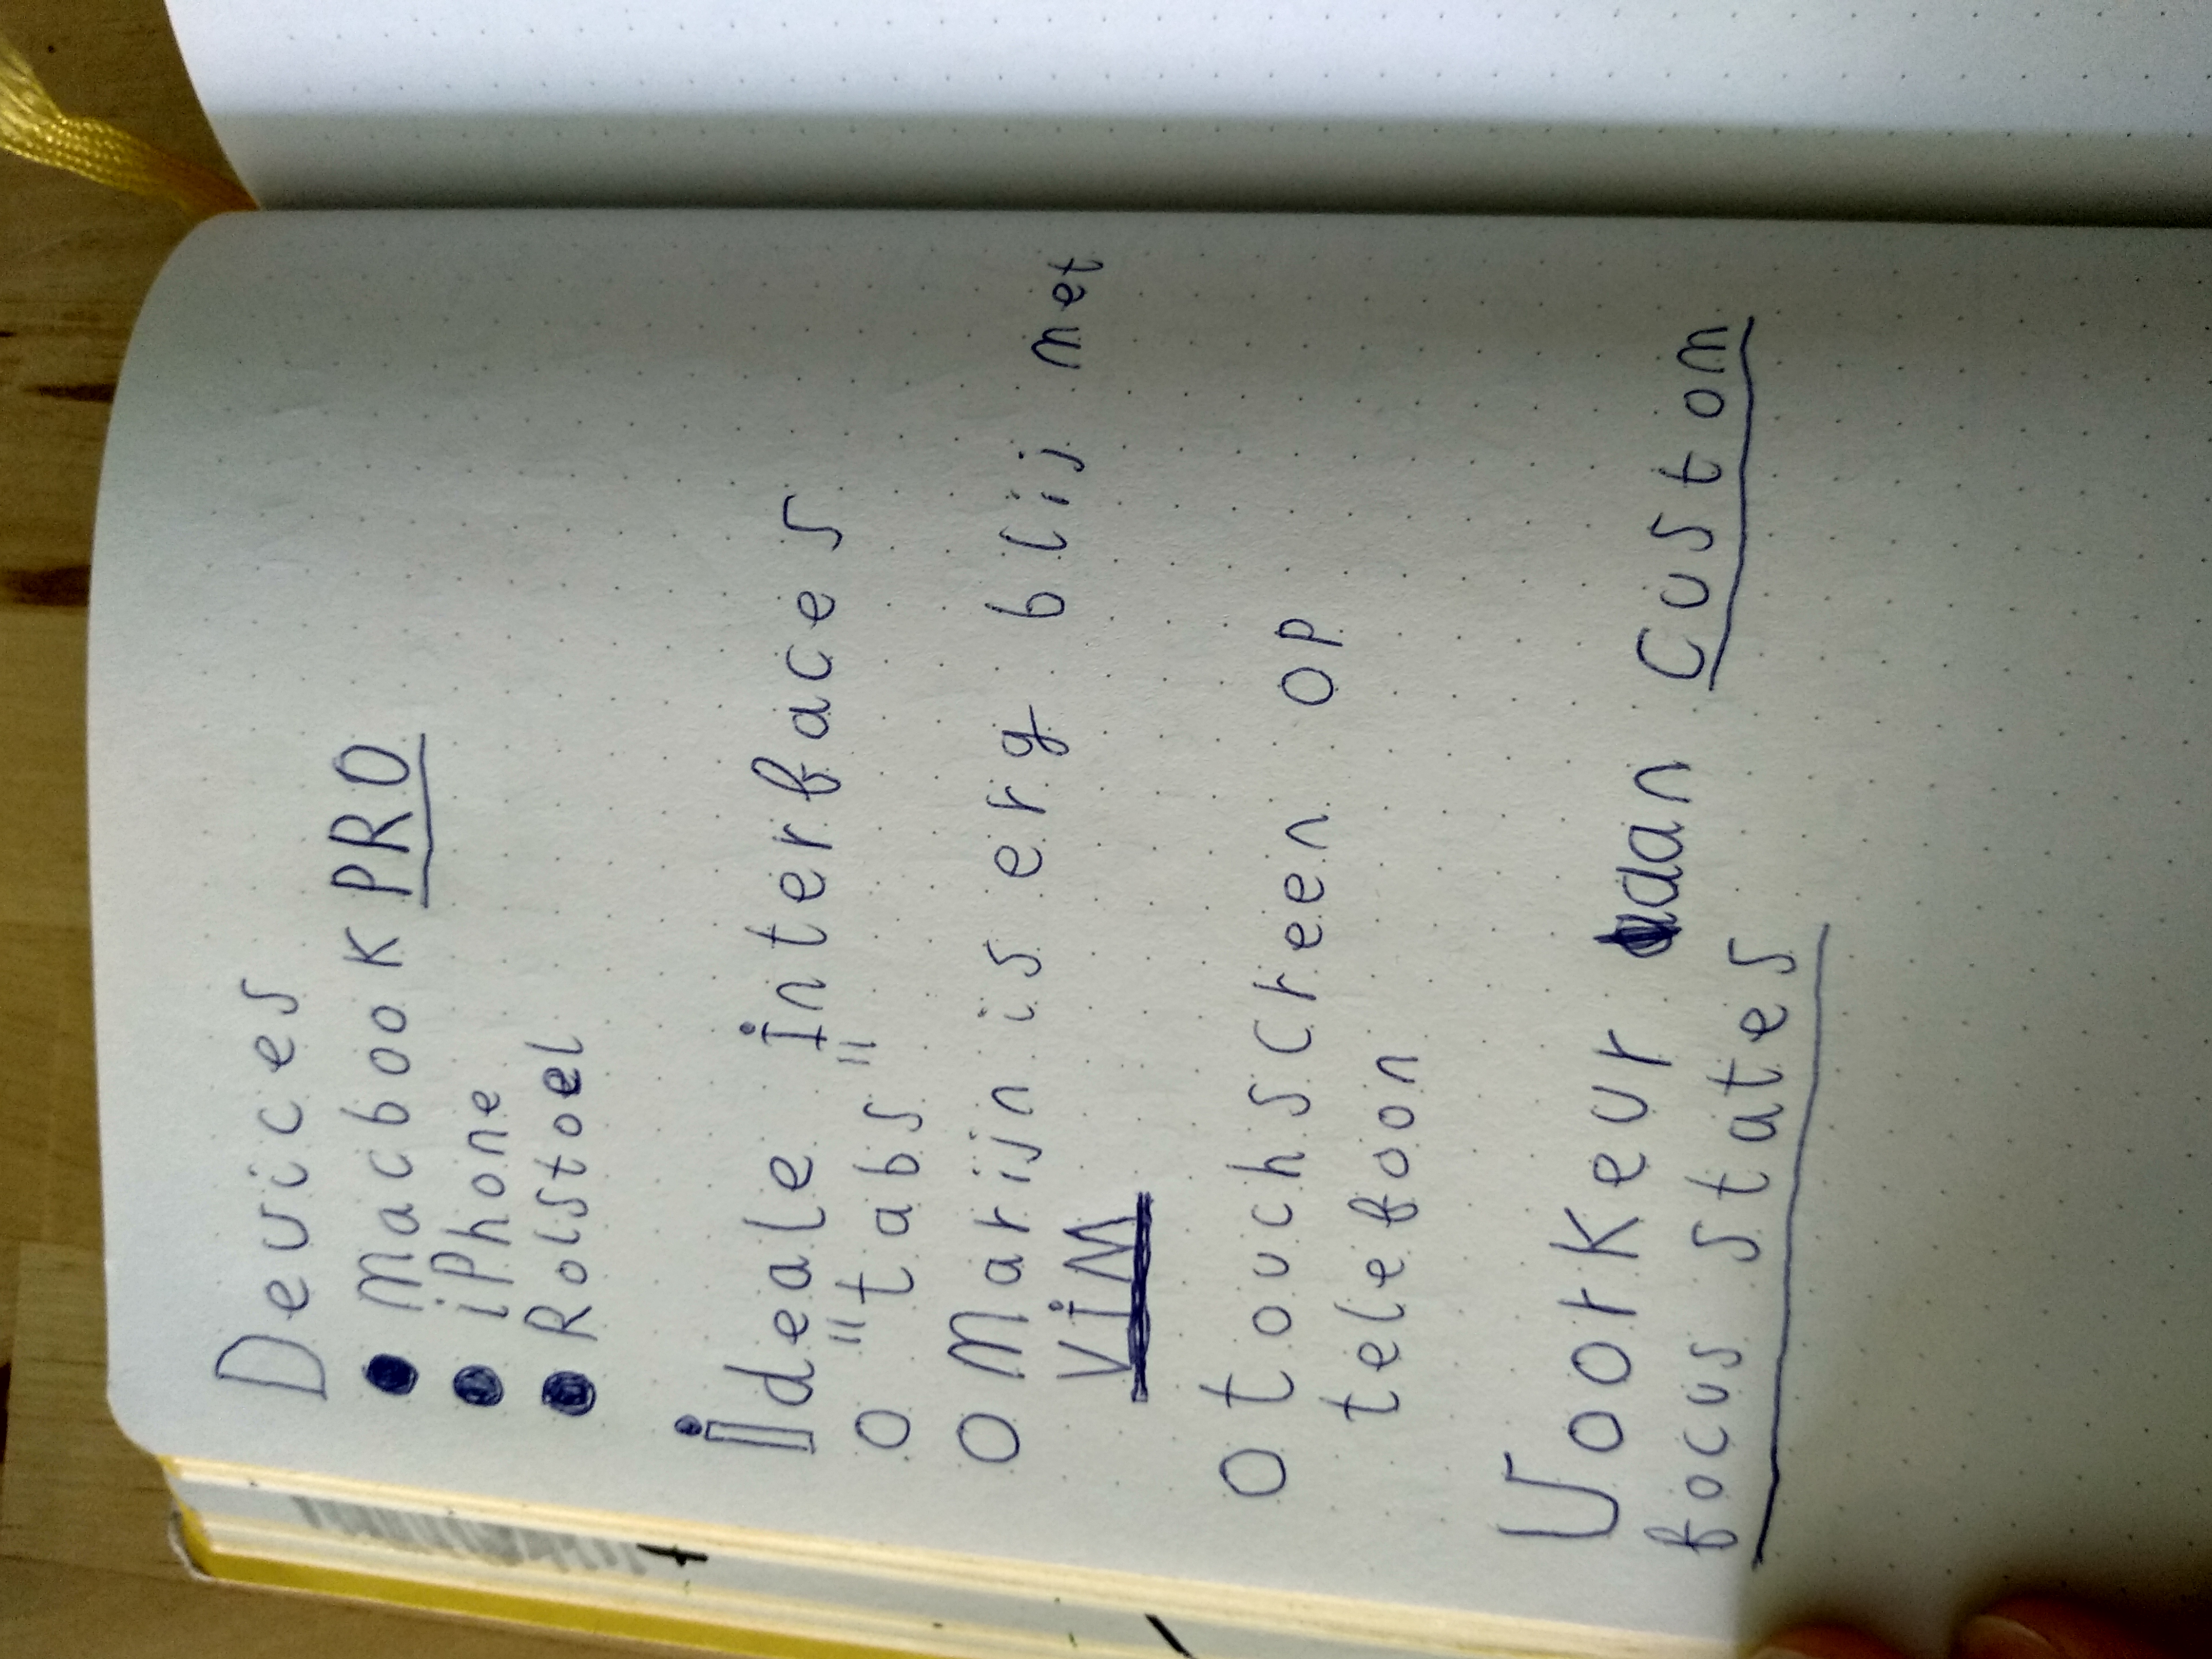 Devices
● Macbook PRO
● iPhone
● Rolstoel
Ideale interfaces
o "tabs"
o Marijn is erg blij met
ViM
o touchscreen op
telefoon
Voorkeur aan custom
focus states